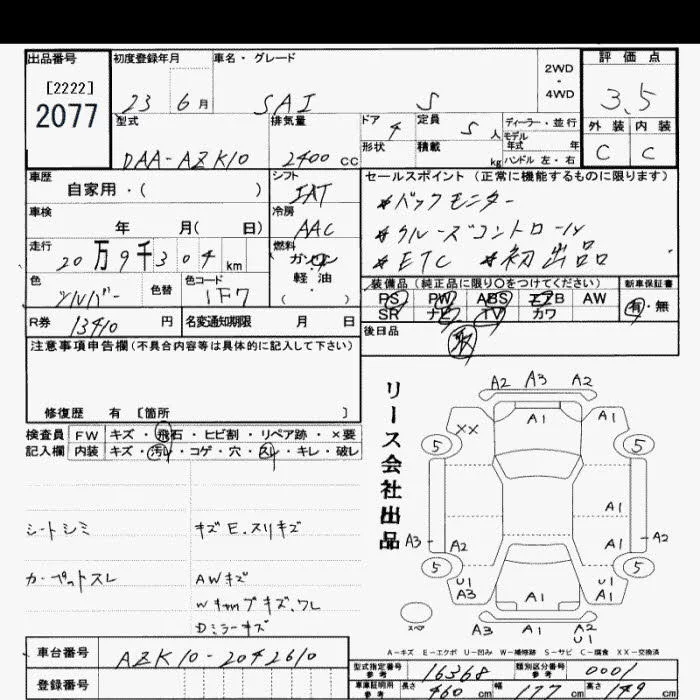 出品番号 初度登録年月 車名・グレード 2WD・4WD 評価点
[2222]
2077
23 6月 SAI S 3.5
型式 排気量 ドア 4 定員 5人 ディーラー・並行 外装 内装
モデル年式 年
DAA-AZK10 2400cc 形状 積載 kg ハンドル 左・右 C C
車歴 シフト セールスポイント (正常に機能するものに限ります)
自家用・( ) IAT *バックモニター
車検 冷房
年 月( 日) AAC *クルーズコントロール
走行 燃料 *ETC *初出品
20万9千304km ガソリン
色 色替 色コード 軽油 装備品 (純正品に限り○をつけてください) 新車保証書
シルバー 1F7 ( ) PS PW ABS エアB AW 有・無
SR ナビ TV カワ
R券 13410円 名変通知期限 月 日 後日品
取
注意事項申告欄(不具合内容等は具体的に記入して下さい)
修復歴 有 [箇所 ]
検査員 FW キズ・飛石・ヒビ割・リペア跡・×要
記入欄 内装 キズ・汚れ・コゲ・穴・スレ・キレ・破レ
シートシミ キズE.スリキズ
カーペットスレ AWキズ
Wキャップキズ.ワレ
Dミラーキズ
リース会社出品
A2 A3 A2
XX A1 A1
5 5
A1
A3 A2 A1 A2
5 5
U1 U1
A3 A1 A1
スペア A3 A1 A2
U2
A-キズ E-エクボ U-凹み W-補修跡 S-サビ C-腐食 XX-交換済
車台番号 AZK10-2042610
型式指定番号 参考 16368 類別区分番号 参考 0001
登録番号 車庫証明用 参考 長さ 460cm 幅 177cm 高さ 149cm